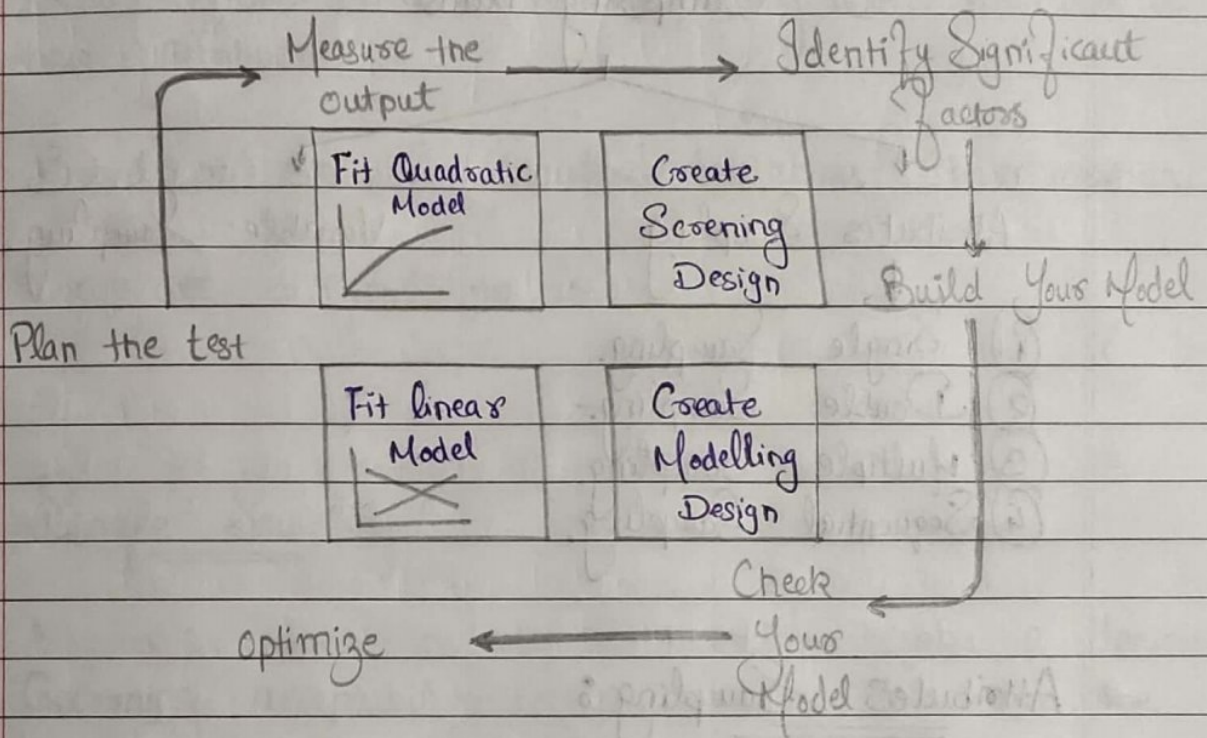 Measure the
output
Identify Significant
factors
Fit Quadratic
Model
Create
Screning
Design
Build Your Model
Plan the test
Fit linear
Model
Create
Modelling
Design
Check
Your
Model
optimize